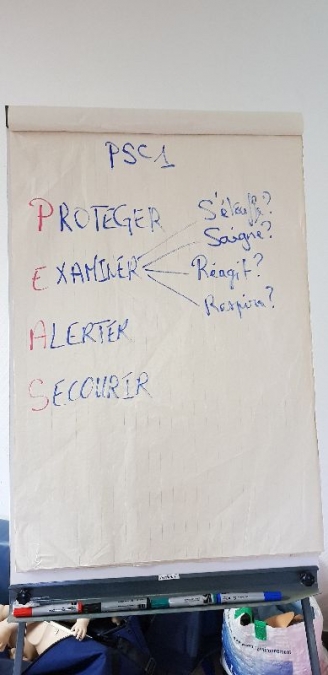 PSC1
PROTEGER
EXAMINER
S'étouffe?
Saigne?
Réagit?
Respire?
ALERTER
SECOURIR